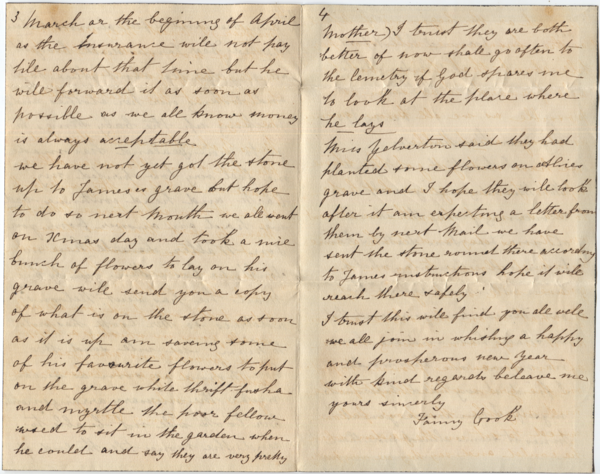 3 March or the begining of April
as the Insurance will not pay
till about that time but he
will forward it as soon as
possible as we all know money
is always acreptable
we have not yet got the stone
up to Jameses grave but hope
to do so next Month we all went
on Xmas day and took a nice
bunch of flowers to lay on his
grave will send you a copy
of what is on the stone as soon
as it is up am saveing some
of his favourite flowers to put
on the grave while thrift fusha
and myrtle the poor fellow
used to sit in the garden when
he could and say they are very pretty
4
Mother) I trust they are both
better of now shall go often to
the cemetry if God spares me
to look at the place where
he lays
Miss Yelverton said they had
planted some flowers on
grave and I hope they will look
after it am expecting a letter from
them by next Mail we have
sent the stone round there according
to James instructions hope it will
reach there safely
I trust this will find you all well
we all join in whishing a happy
and prosperous new year
with kind regards beleave me
yours sincerly
Fanny Cook